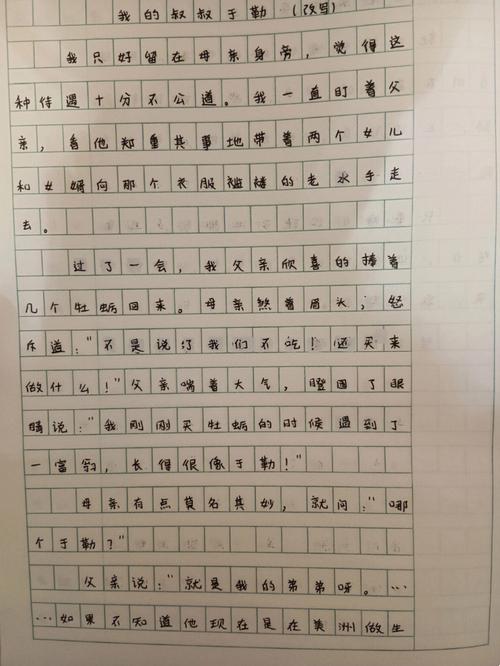 我的叔叔于勒（改写）
我只好留在母亲身旁，觉得这
种待遇十分不公道。我一直盯着父
亲，看他郑重其事地带着两个女儿
和女婿向那个衣服褴褛的老水手走
去。
过了一会，我父亲欣喜的捧着
几个牡蛎回来。母亲皱着眉头，怒
斥道："不是说了我们不吃！还买来
做什么！"父亲喘着大气，瞪圆了眼
睛说："我刚刚买牡蛎的时候遇到了
一富翁，长得很像于勒！"
母亲有点莫名其妙，就问："哪
个于勒？"
父亲说："就是我的弟弟呀。…
…如果不知道他现在是在美洲做生